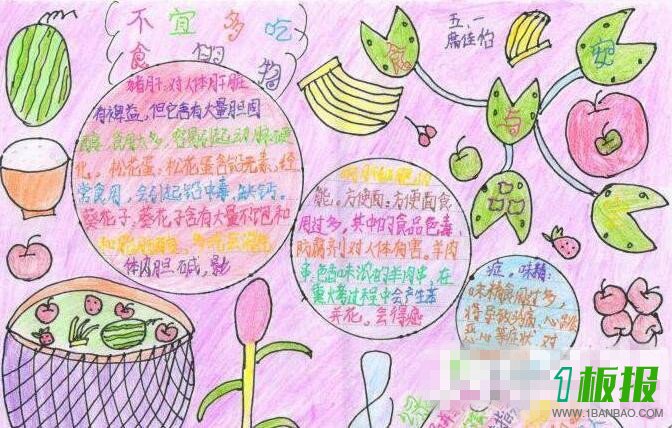 不宜多吃
食的物
五、一
席佳怡
饮
食
与
猪肝:对人体肝脏
有裨益,但它含有大量胆固
醇,食用太多,容易引起动脉硬
化。松花蛋:松花蛋含铅元素,经
常食用,会引起铅中毒,缺钙。
葵花子:葵花子含有大量不饱和
体内胆碱,影
能。方便面:方便面食
用过多,其中的食品色素,
防腐剂对人体有害。羊肉
串:色香味浓的羊肉串,在
熏烤过程中会产生
会得癌
症。味精:
味精食用过多,
将导致头痛、心跳
恶心等症状,对
1板报
WWW.1BANBAO.COM